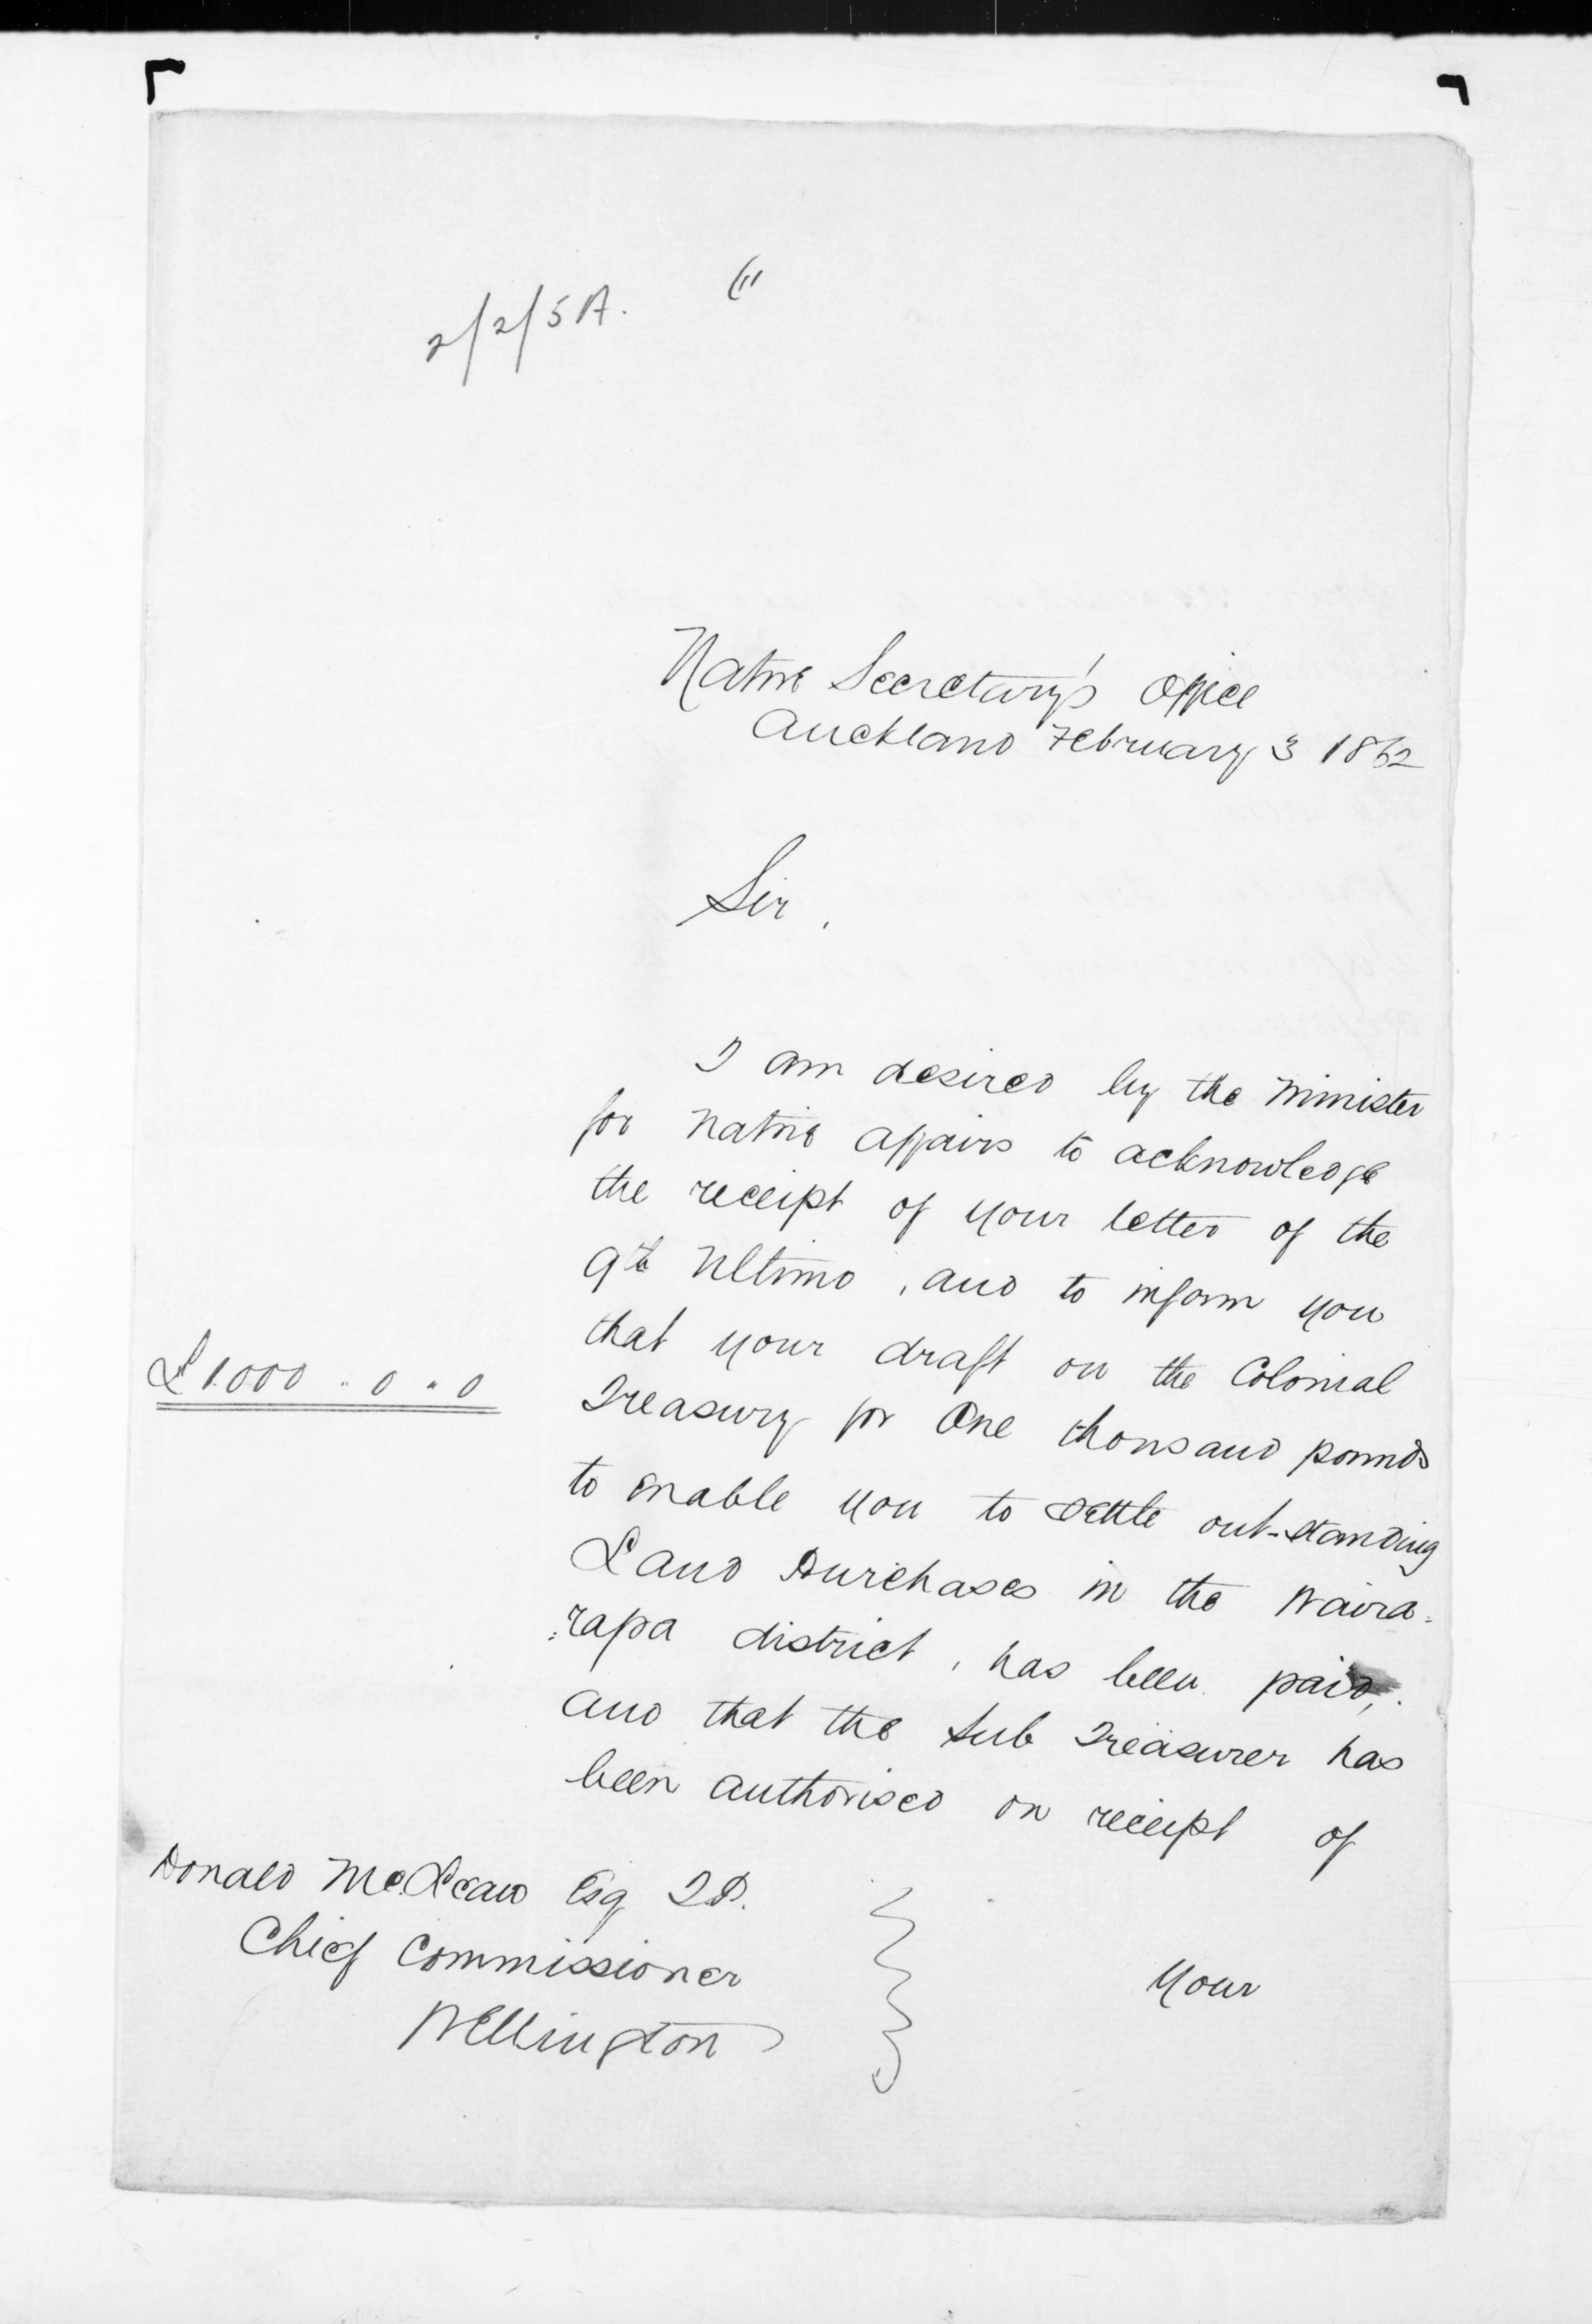 2/2/5A.
Native Secretary's Office
Auckland February 3 1862
Sir,
I am desired by the Minister
for Native Affairs to acknowledge
the receipt of your letter of the
9th Ultimo, and to inform you
that your draft on the Colonial
£1000 " 0 " 0
Treasury for One thousand pounds
to enable you to settle out-standing
Land Purchases in the Waira=
=rapa district, has been paid,
and that the Sub Treasurer has
been authorised on receipt of
Donald McLean Esq
Chief Commissioner
Wellington
your